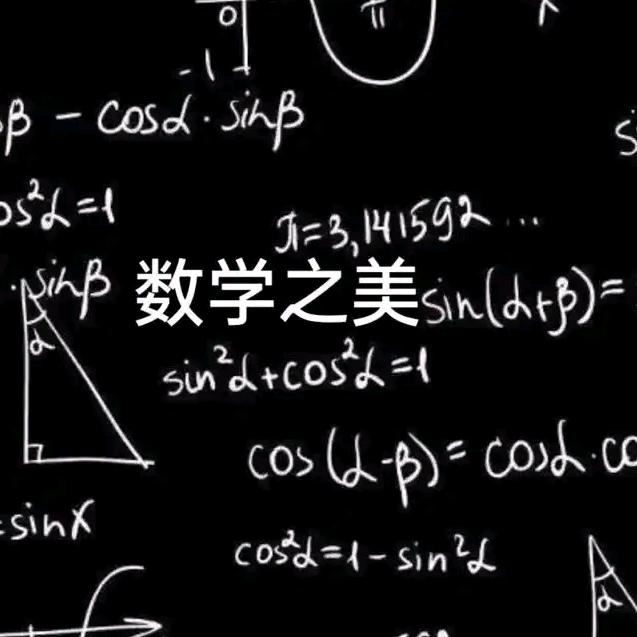 0
π
-1
β - cosα · sinβ
os²α=1
π=3,141592...
· sinβ
数学之美
sin(α+β)=
α
sin²α+cos²α=1
cos(α-β)= cosα·co
=sinx
cos²α=1-sin²α
α